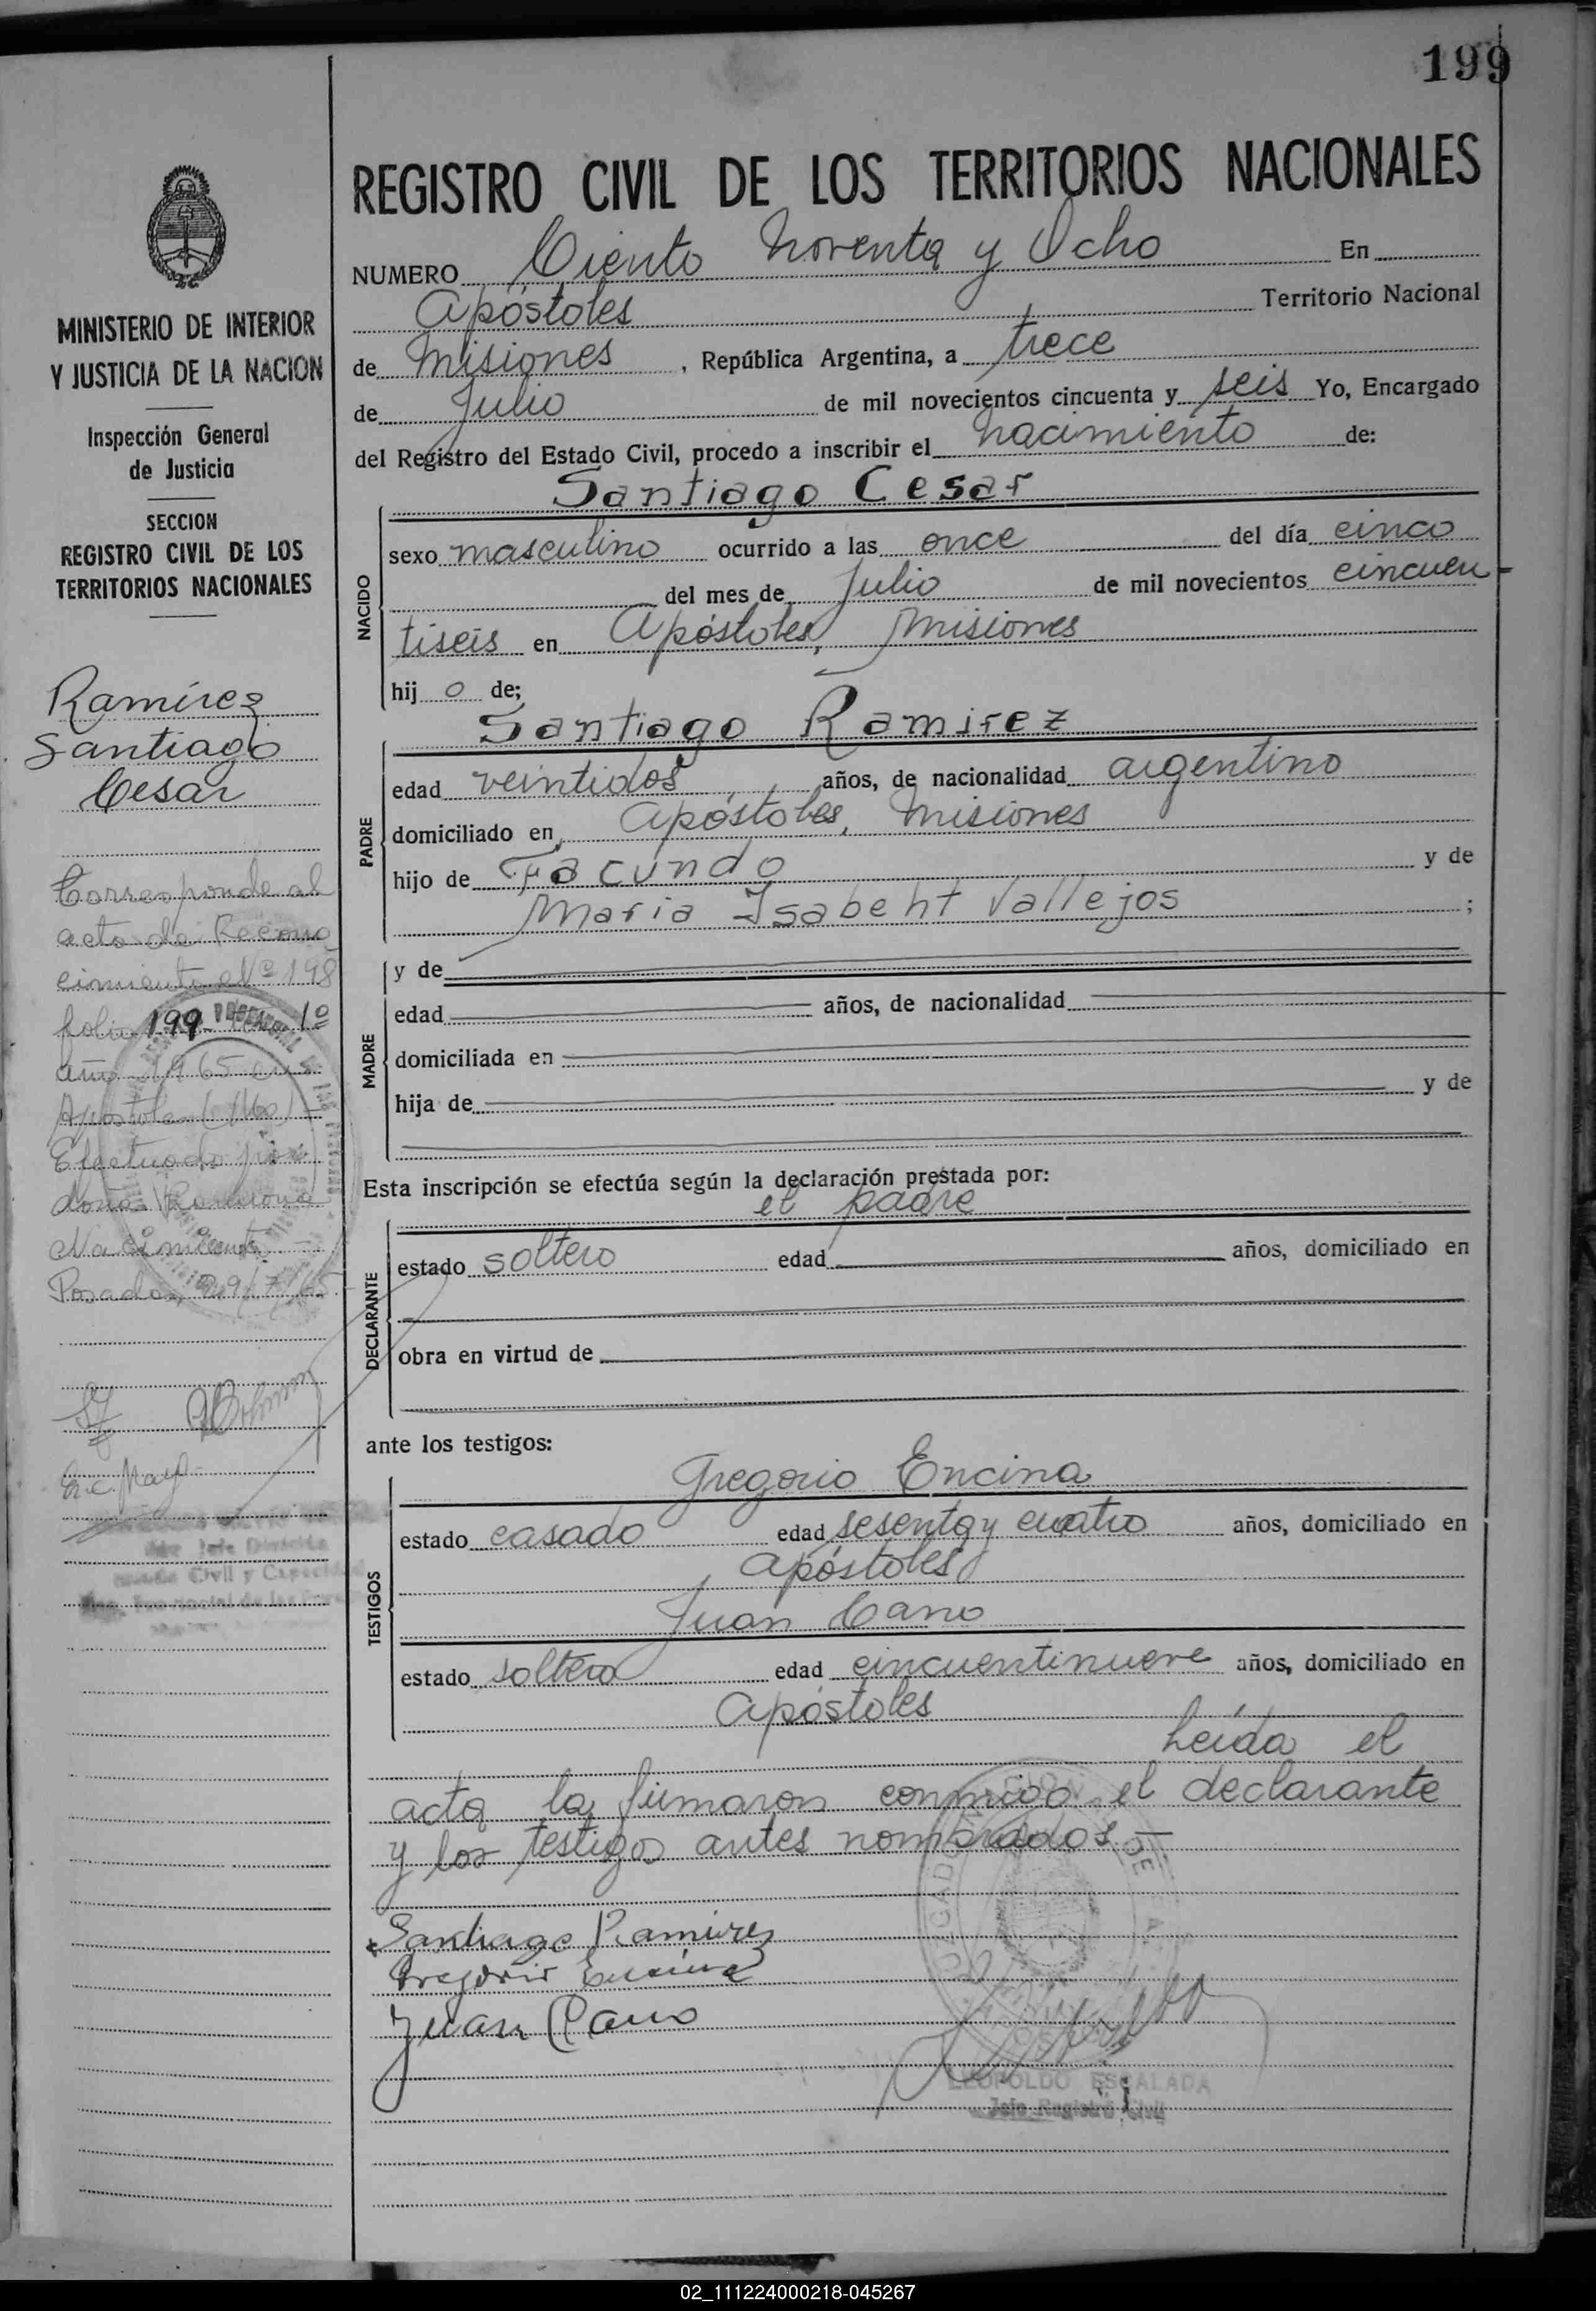 199
REGISTRO CIVIL DE LOS TERRITORIOS NACIONALES
NUMERO Ciento Noventa y Ocho En
Apóstoles Territorio Nacional
de Misiones , República Argentina, a trece
de Julio de mil novecientos cincuenta y seis Yo, Encargado
del Registro del Estado Civil, procedo a inscribir el nacimiento de:
Santiago Cesar
NACIDO
sexo masculino ocurrido a las once del día cinco
del mes de Julio de mil novecientos cincuen
tiseis en Apóstoles, Misiones
hij o de;
Santiago Ramirez
PADRE
edad veintidos años, de nacionalidad argentino
domiciliado en Apóstoles, Misiones
hijo de Facundo y de
Maria Isabeht Vallejos ;
MADRE
y de
edad años, de nacionalidad
domiciliada en
hija de y de
Esta inscripción se efectúa según la declaración prestada por:
el padre
DECLARANTE
estado soltero edad años, domiciliado en
obra en virtud de
ante los testigos:
Gregorio Encina
TESTIGOS
estado casado edad sesenta y cuatro años, domiciliado en
Apóstoles
Juan Cano
estado soltero edad cincuentinueve años, domiciliado en
Apóstoles
Leída el
acta la firmaron conmigo el declarante
y los testigos antes nombrados.—
Santiago Ramirez
Gregorio Encina
Juan Cano
LEOPOLDO ESCALADA
Jefe Registro Civil
MINISTERIO DE INTERIOR
Y JUSTICIA DE LA NACION
Inspección General
de Justicia
SECCION
REGISTRO CIVIL DE LOS
TERRITORIOS NACIONALES
Ramírez
Santiago
Cesar
Corresponde al
acto de Recono
cimiento Nº 198
folio 199 1º
año 1965 en
Apóstoles
Efectuado por
doña Ramona
Nacimiento.—
Posadas, 29/7/65
02_111224000218-045267